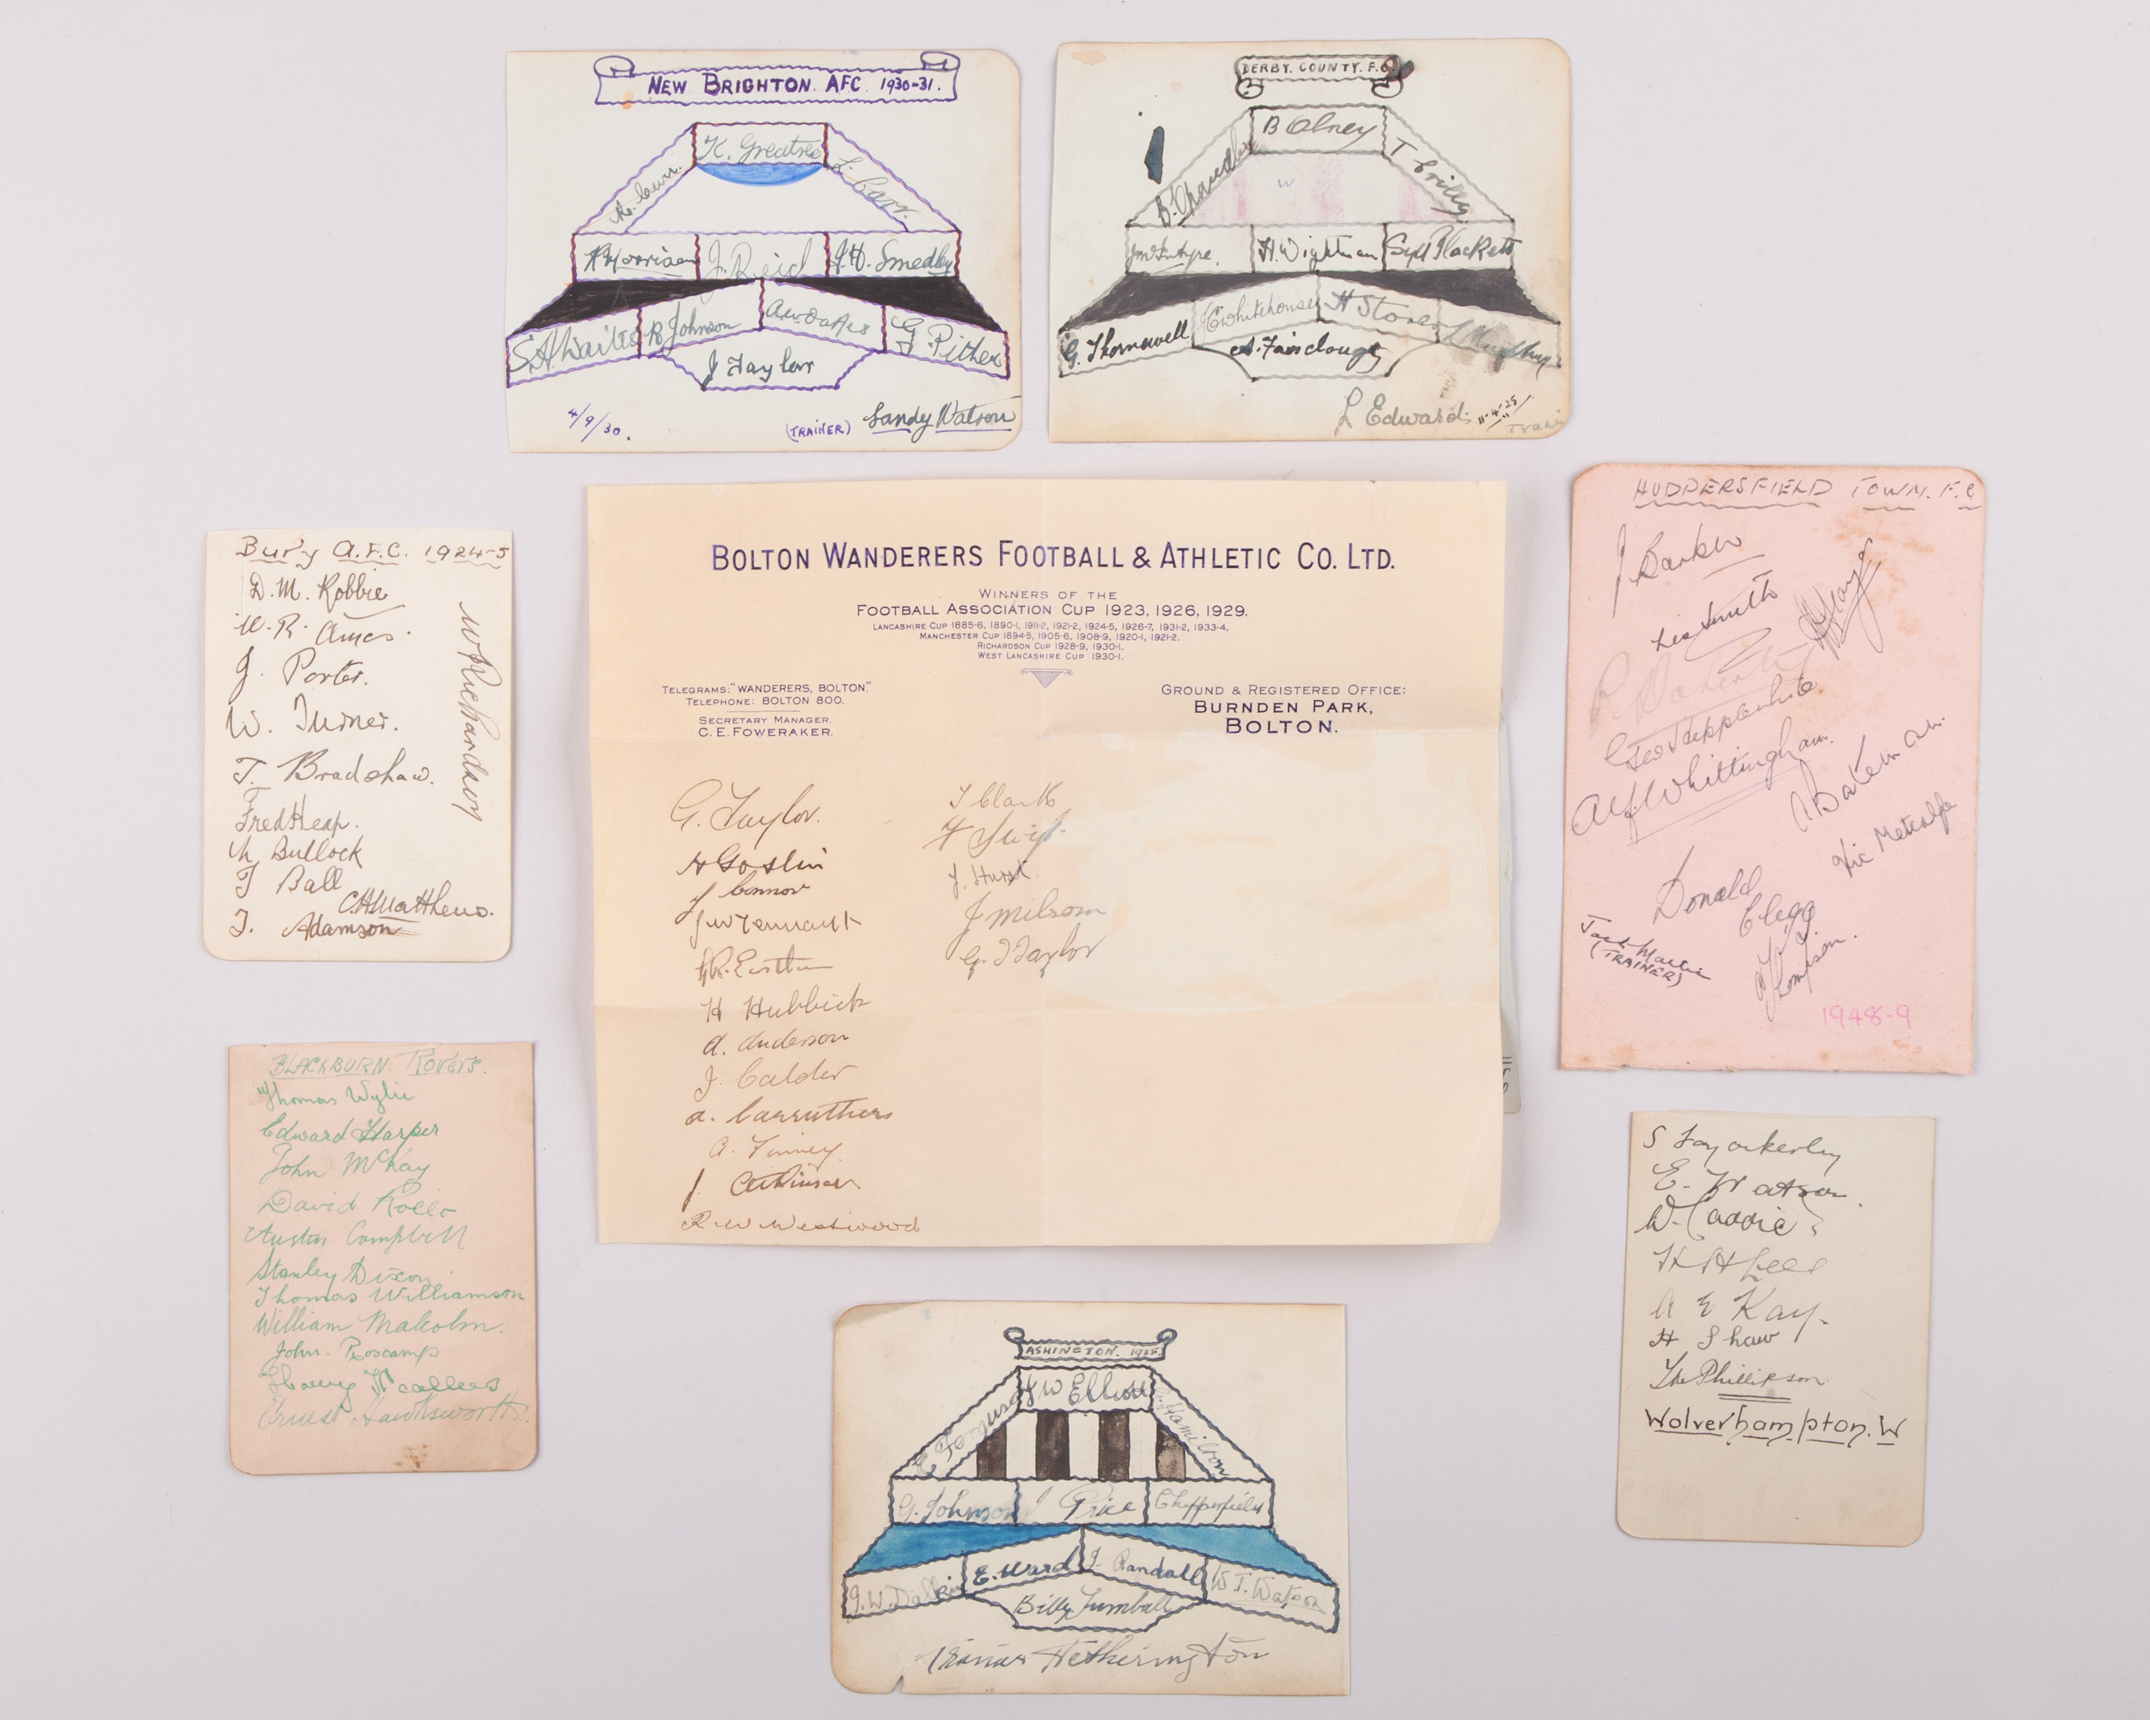 NEW BRIGHTON. AFC. 1930-31.
K. Greatrex
L. Carr.
R Morrison J. Reid J.H. Smedley
S.A. Waites R Johnson A.W. Oakes G. Pither
J Taylor
4/9/30. (TRAINER) Sandy Watson
DERBY. COUNTY. F.C.
B Olney
T Crilly
J McIntyre. H. Wightman Syd Plackett
G. Thornewell C Whitehouse H Storer
A. Fairclough
L Edwards 11-4-25
HUDDERSFIELD TOWN. F.C
J. Barker
Les Smith
Geo Hepplewhite
Alf Whittingham.
Bateman.
Vic Metcalfe
Donald
Clegg
Jack Martin
(TRAINER)
Thompson.
1948-9
Bury A.F.C. 1924-5
D. M. Robbie
W. R. Amos.
J. Porter.
W. Turner.
T. Bradshaw.
Fred Heap.
N Bullock
T Ball
C.H. Matthews.
T. Adamson
W Richardson
BOLTON WANDERERS FOOTBALL & ATHLETIC CO. LTD.
WINNERS OF THE
FOOTBALL ASSOCIATION CUP 1923, 1926, 1929.
LANCASHIRE CUP 1885-6, 1890-1, 1911-2, 1921-2, 1924-5, 1926-7, 1931-2, 1933-4.
MANCHESTER CUP 1894-5, 1905-6, 1908-9, 1920-1, 1921-2.
RICHARDSON CUP 1928-9, 1930-1.
WEST LANCASHIRE CUP 1930-1.
TELEGRAMS: "WANDERERS, BOLTON."
TELEPHONE: BOLTON 800.
SECRETARY MANAGER.
C. E. FOWERAKER.
GROUND & REGISTERED OFFICE:
BURNDEN PARK,
BOLTON.
G. Taylor.
H Goslin
J Connor
J W Tennant
G.R. Eastham
H Hubbick
A. Anderson
J. Calder
A. Carruthers
A. Finney.
J. Atkinson
R W Westwood
T Clark
J. Hurst.
J Milsom
G. T Taylor
BLACKBURN. ROVERS.
Thomas Wylie
Edward Harper
John McKay
David Rollo
Austin Campbell
Stanley Dixon
Thomas Williamson
William Malcolm.
John. Roscamp
Ernest Hawksworth.
E. Watson.
W. Caddick
H H Lees
A E Kay.
H Shaw
Tho Phillipson
Wolverhampton. W
ASHINGTON.
J W Elliott
Hamilton
G. Johnson J Price Chipperfield
E. Ward J. Randall W T. Watson
Billy Turnbull
Trainer Hetherington